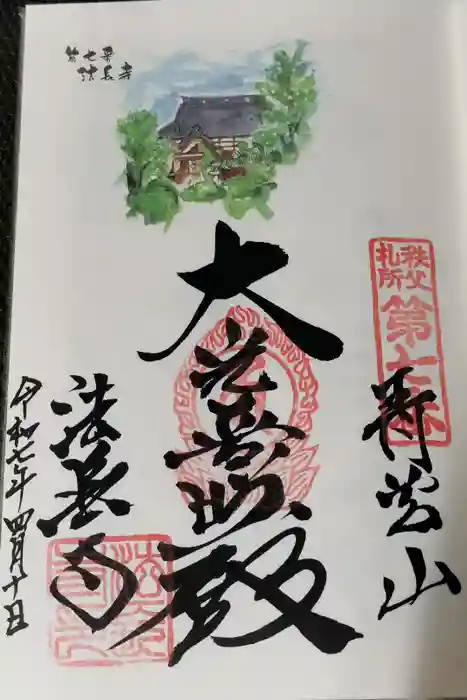 第七番
法長寺
秩父
札所
第七番
青苔山
大光普照殿
法長寺
令和七年四月十日